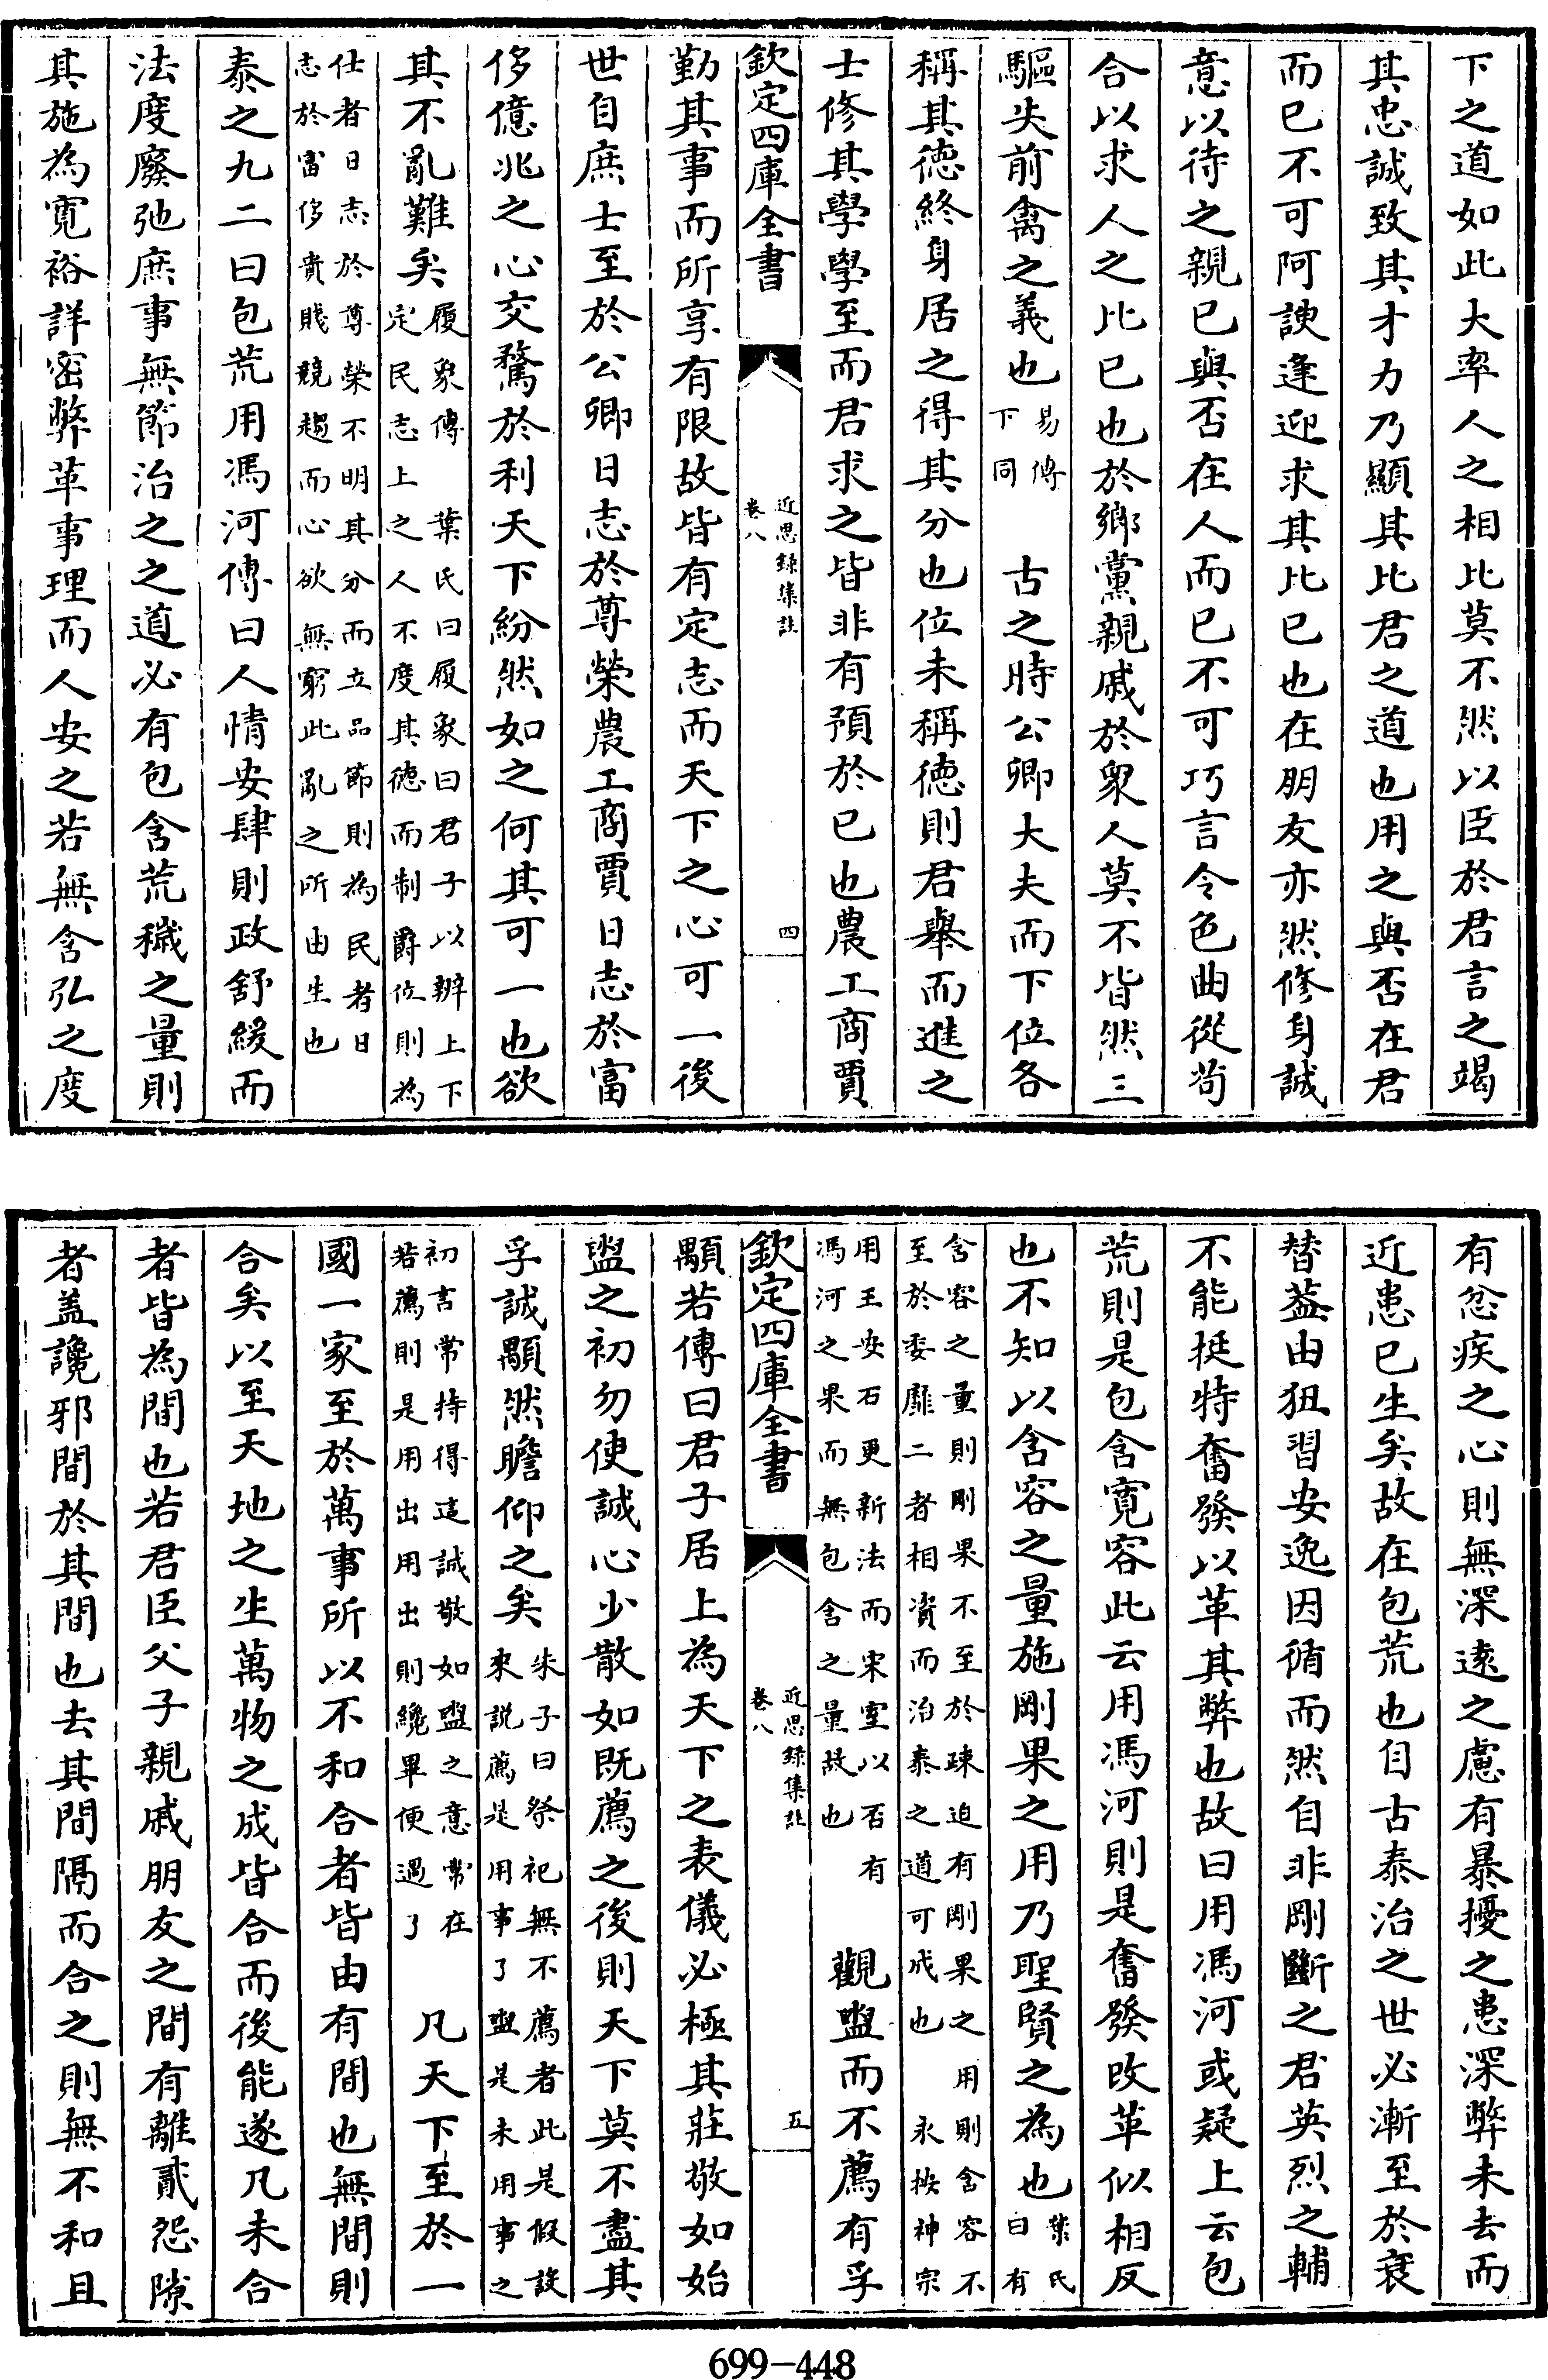 下之道如此大率人之相比莫不然以臣於君言之竭
其忠誠致其才力乃顯其比君之道也用之與否在君
而已不可阿諛逢迎求其比已也在朋友亦然修身誠
意以待之親已與否在人而已不可巧言令色曲從苟
合以求人之比已也於鄉黨親戚於衆人莫不皆然三
驅失前禽之義也易傳下同 古之時公卿大夫而下位各
稱其徳終身居之得其分也位未稱徳則君舉而進之
士修其學學至而君求之皆非有預於已也農工商賈
欽定四庫全書 近思錄集註卷八 四
勤其事而所享有限故皆有定志而天下之心可一後
世自庶士至於公卿日志於尊榮農工商賈日志於富
侈億兆之心交騖於利天下紛然如之何其可一也欲
其不亂難矣履彖傳 葉氏曰履彖曰君子以辨上下定民志上之人不度其徳而制爵位則為
仕者日志於尊榮不明其分而立品節則為民者日志於富侈貴賤競趨而心欲無窮此亂之所由生也
泰之九二曰包荒用馮河傳曰人情安肆則政舒緩而
法度廢弛庶事無節治之之道必有包含荒穢之量則
其施為寛裕詳密弊革事理而人安之若無含弘之度
有忿疾之心則無深遠之慮有暴擾之患深弊未去而
近患已生矣故在包荒也自古泰治之世必漸至於衰
替葢由狃習安逸因循而然自非剛斷之君英烈之輔
不能挺特奮發以革其弊也故曰用馮河或疑上云包
荒則是包含寛容此云用馮河則是奮發改革似相反
也不知以含容之量施剛果之用乃聖賢之為也葉氏曰有
含容之量則剛果不至於疎迫有剛果之用則含容不至於委靡二者相資而治泰之道可成也 永按神宗
用王安石更新法而宋室以否有馮河之果而無包含之量故也 觀盥而不薦有孚
欽定四庫全書 近思錄集註卷八 五
顒若傳曰君子居上為天下之表儀必極其莊敬如始
盥之初勿使誠心少散如既薦之後則天下莫不盡其
孚誠顒然瞻仰之矣朱子曰祭祀無不薦者此是假設來説薦是用事了盥是未用事之
初言常持得這誠敬如盥之意常在若薦則是用出用出則纔畢便過了 凡天下至於一
國一家至於萬事所以不和合者皆由有間也無間則
合矣以至天地之生萬物之成皆合而後能遂凡未合
者皆為間也若君臣父子親戚朋友之間有離貳怨隙
者盖讒邪間於其間也去其間隔而合之則無不和且
699-448